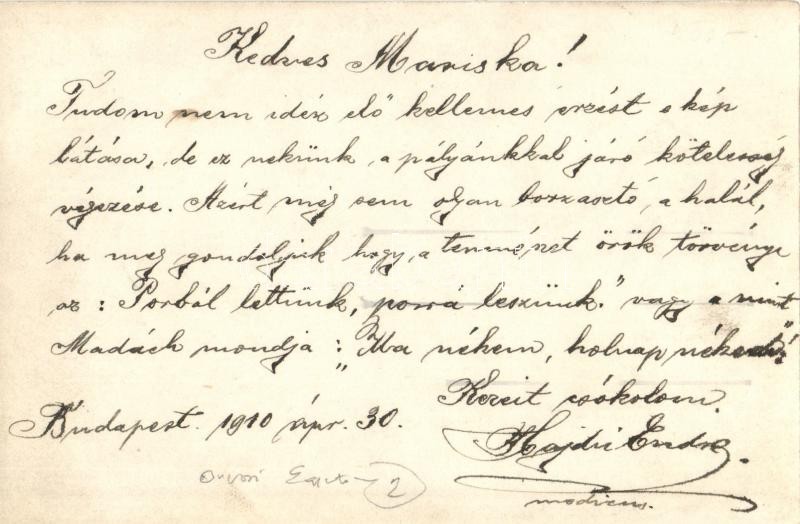 Kedves Mariska!
Tudom nem idéz elő kellemes érzést e kép
látása, de ez nekünk, a pályánkkal járó kötelesség
végezése. Azért még sem olyan borzasztó, a halál,
ha meg gondoljuk hogy, a természet örök törvénye
az: Porból lettünk, porrá leszünk." vagy a mint
Madách mondja: „Ma nékem, holnap néked"!
Kezeit csókolom.
Budapest. 1910 ápr. 30.
Hajdú Endre.
medicus.
2